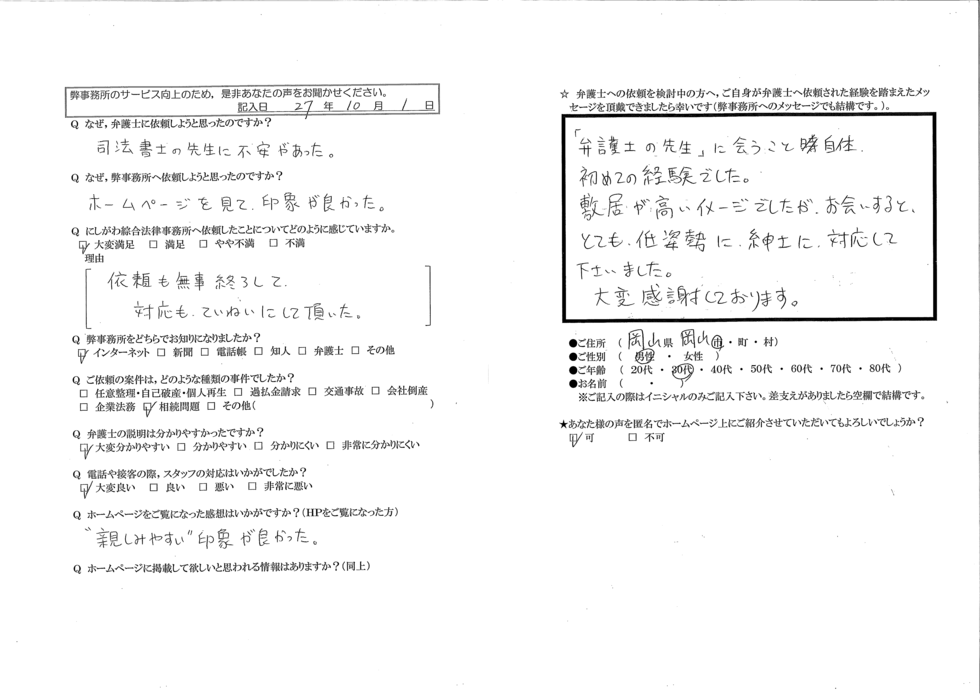 弊事務所のサービス向上のため，是非あなたの声をお聞かせください。
記入日 27 年 10 月 1 日
Q なぜ，弁護士に依頼しようと思ったのですか？
司法書士の先生に不安があった。
Q なぜ，弊事務所へ依頼しようと思ったのですか？
ホームページを見て、印象が良かった。
Q にしがわ綜合法律事務所へ依頼したことについてどのように感じていますか。
☑ 大変満足 □ 満足 □ やや不満 □ 不満
理由
依頼も無事終ろして、
対応も、ていねいにして頂いた。
Q 弊事務所をどちらでお知りになりましたか？
☑ インターネット □ 新聞 □ 電話帳 □ 知人 □ 弁護士 □ その他
Q ご依頼の案件は，どのような種類の事件でしたか？
□ 任意整理・自己破産・個人再生 □ 過払金請求 □ 交通事故 □ 会社倒産
□ 企業法務 ☑ 相続問題 □ その他( )
Q 弁護士の説明は分かりやすかったですか？
☑ 大変分かりやすい □ 分かりやすい □ 分かりにくい □ 非常に分かりにくい
Q 電話や接客の際，スタッフの対応はいかがでしたか？
☑ 大変良い □ 良い □ 悪い □ 非常に悪い
Q ホームページをご覧になった感想はいかがですか？(HPをご覧になった方)
"親しみやすい"印象が良かった。
Q ホームページに掲載して欲しいと思われる情報はありますか？(同上)
☆ 弁護士への依頼を検討中の方へ，ご自身が弁護士へ依頼された経験を踏まえたメッ
セージを頂戴できましたら幸いです(弊事務所へのメッセージでも結構です。)。
「弁護士の先生」に会うこと自体、
初めての経験でした。
敷居が高いイメージでしたが、お会いすると、
とても、低姿勢に、紳士に、対応して
下さいました。
大変感謝しております。
●ご住所 ( 岡山県 岡山市・町・村)
●ご性別 ( 男性 ・ 女性 )
●ご年齢 ( 20代 ・ 30代 ・ 40代 ・ 50代 ・ 60代 ・ 70代 ・ 80代 )
●お名前 ( ・ )
※ご記入の際はイニシャルのみご記入下さい。差支えがありましたら空欄で結構です。
★あなた様の声を匿名でホームページ上にご紹介させていただいてもよろしいでしょうか？
☑ 可 □ 不可